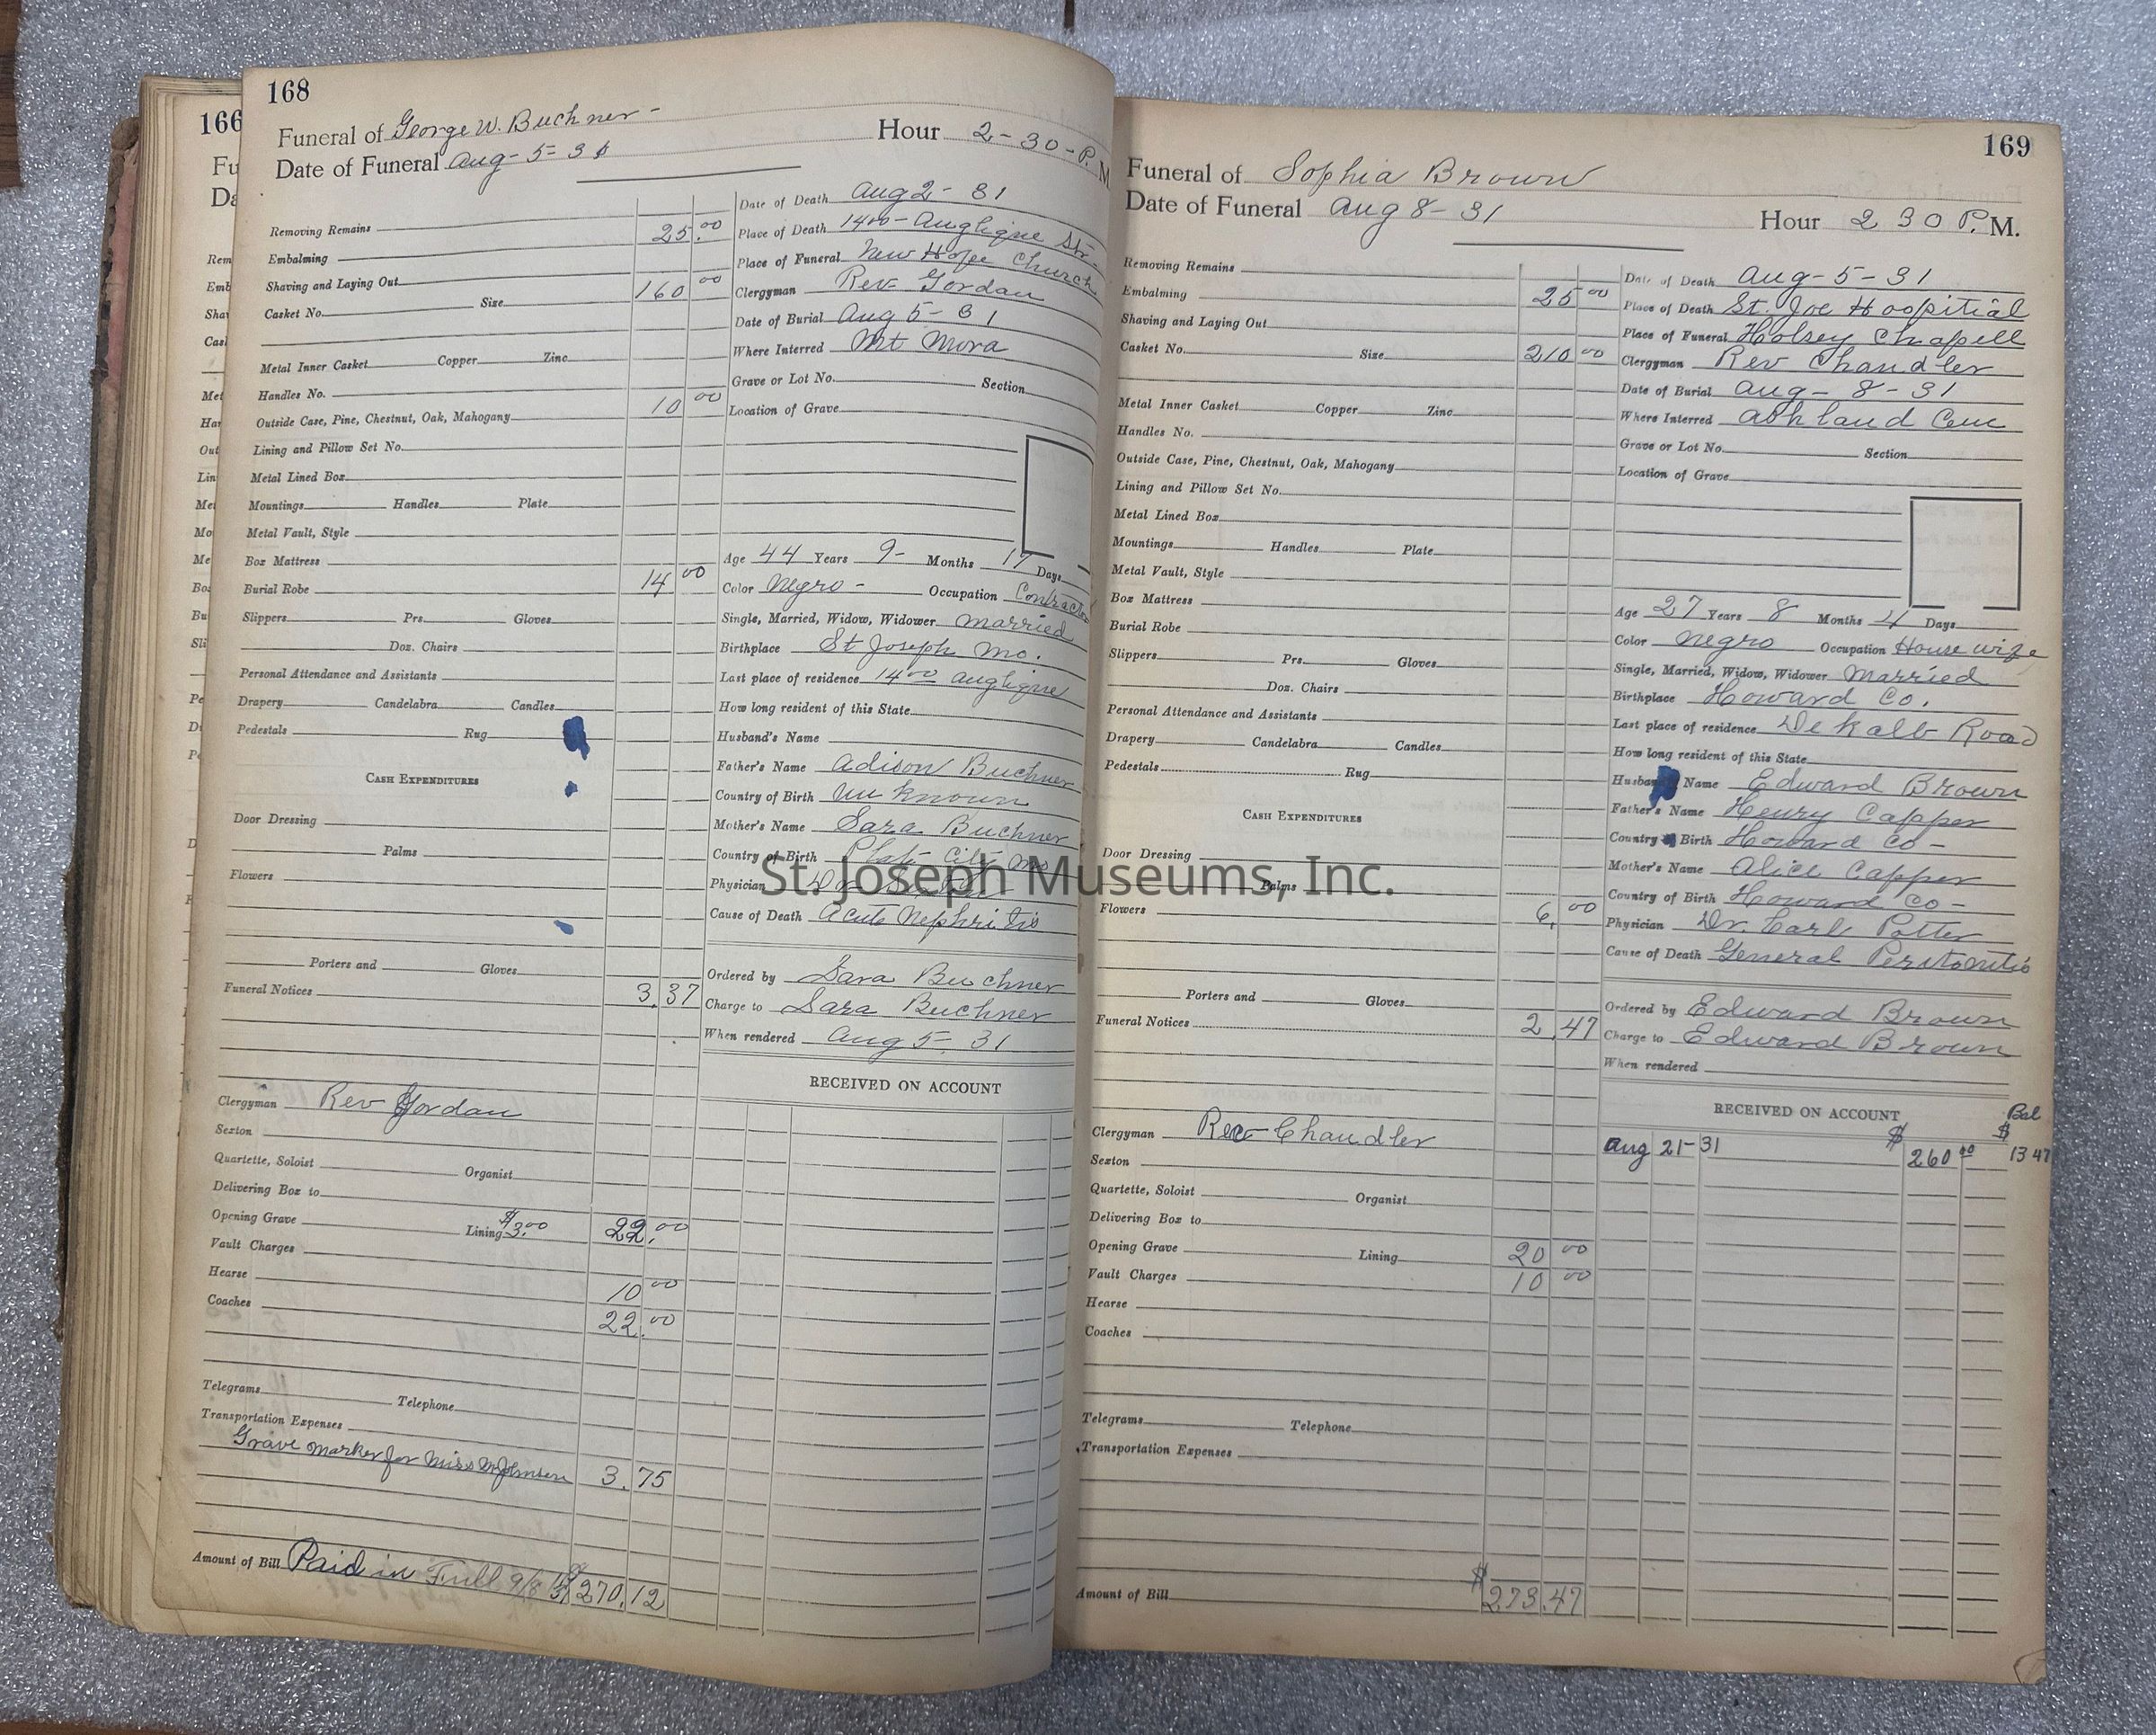 166
Fu
Da
Rem
Emb
Shav
Cas
Met
Har
Out
Lin
Me
Mo
Me
Bo
Bu
Sli
Pe
D
P
168
Funeral of George W. Buchner -
Hour 2-30-P. M
Date of Funeral Aug-5-31
Removing Remains
Embalming 25.00
Shaving and Laying Out
Casket No. Size 160 00
Metal Inner Casket Copper Zinc
Handles No.
Outside Case, Pine, Chestnut, Oak, Mahogany 10 00
Lining and Pillow Set No.
Metal Lined Box
Mountings Handles Plate
Metal Vault, Style
Box Mattress
Burial Robe 14 00
Slippers Prs. Gloves
Doz. Chairs
Personal Attendance and Assistants
Drapery Candelabra Candles
Pedestals Rug
CASH EXPENDITURES
Door Dressing
Palms
Flowers
Porters and Gloves
Funeral Notices 3.37
Clergyman Rev Gordan
Sexton
Quartette, Soloist Organist
Delivering Box to
Opening Grave Lining $3.00 22.00
Vault Charges
Hearse 10 00
Coaches 22.00
Telegrams Telephone
Transportation Expenses
Grave marker for Miss Johnson 3.75
Amount of Bill Paid in Full 9/8 31 $270.12
Date of Death Aug 2-31
Place of Death 1400- Anglique Str-
Place of Funeral New Hope Church
Clergyman Rev Gordan
Date of Burial Aug 5-31
Where Interred Mt Mora
Grave or Lot No. Section
Location of Grave
Age 44 Years 9- Months 17 Days
Color Negro - Occupation Contractor
Single, Married, Widow, Widower Married
Birthplace St Joseph Mo.
Last place of residence 1400 Anglique
How long resident of this State
Husband's Name
Father's Name Adison Buchner
Country of Birth Un known
Mother's Name Sara Buchner
Country of Birth Plat City Mo
Physician Dr
Cause of Death Acute Nephritis
Ordered by Sara Buchner
Charge to Sara Buchner
When rendered Aug 5-31
RECEIVED ON ACCOUNT
169
Funeral of Sophia Brown
Date of Funeral Aug 8-31
Hour 2 30 P. M.
Removing Remains
Embalming 25 00
Shaving and Laying Out
Casket No. Size 210 00
Metal Inner Casket Copper Zinc
Handles No.
Outside Case, Pine, Chestnut, Oak, Mahogany
Lining and Pillow Set No.
Metal Lined Box
Mountings Handles Plate
Metal Vault, Style
Box Mattress
Burial Robe
Slippers Prs. Gloves
Doz. Chairs
Personal Attendance and Assistants
Drapery Candelabra Candles
Pedestals Rug
CASH EXPENDITURES
Door Dressing
Palms
Flowers 6.00
Porters and Gloves
Funeral Notices 2.47
Clergyman Rev Chandler
Sexton
Quartette, Soloist Organist
Delivering Box to
Opening Grave Lining 20 00
Vault Charges 10 00
Hearse
Coaches
Telegrams Telephone
Transportation Expenses
Amount of Bill $273.47
Date of Death Aug-5-31
Place of Death St. Joe Hospitial
Place of Funeral Holsey Chapell
Clergyman Rev Chandler
Date of Burial Aug-8-31
Where Interred Ashland Cem
Grave or Lot No. Section
Location of Grave
Age 27 Years 8 Months 4 Days
Color Negro Occupation House wife
Single, Married, Widow, Widower Married
Birthplace Howard Co.
Last place of residence De Kalb Road
How long resident of this State
Husband's Name Edward Brown
Father's Name Henry Capper
Country of Birth Howard Co -
Mother's Name Alice Capper
Country of Birth Howard Co -
Physician Dr. Carl Potter
Cause of Death General Peritonitis
Ordered by Edward Brown
Charge to Edward Brown
When rendered
RECEIVED ON ACCOUNT Bal
Aug 21-31 $ 260 00 $ 13 47
St. Joseph Museums, Inc.